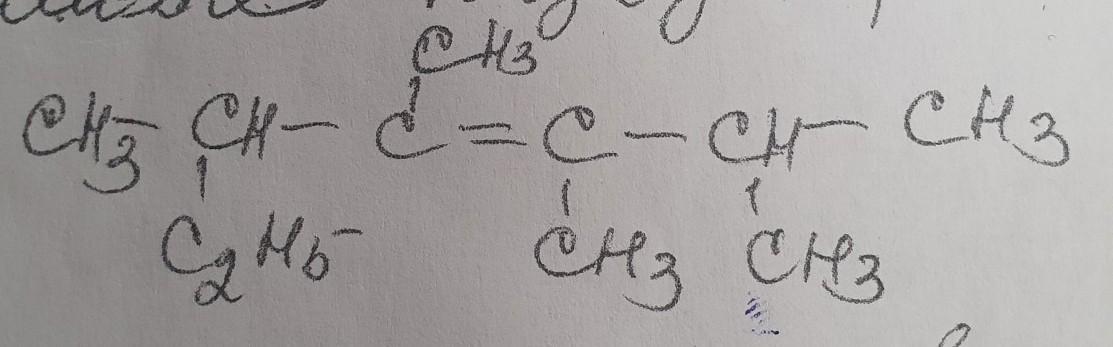 CH3
CH3 - CH - C = C - CH - CH3
C2H5 CH3 CH3